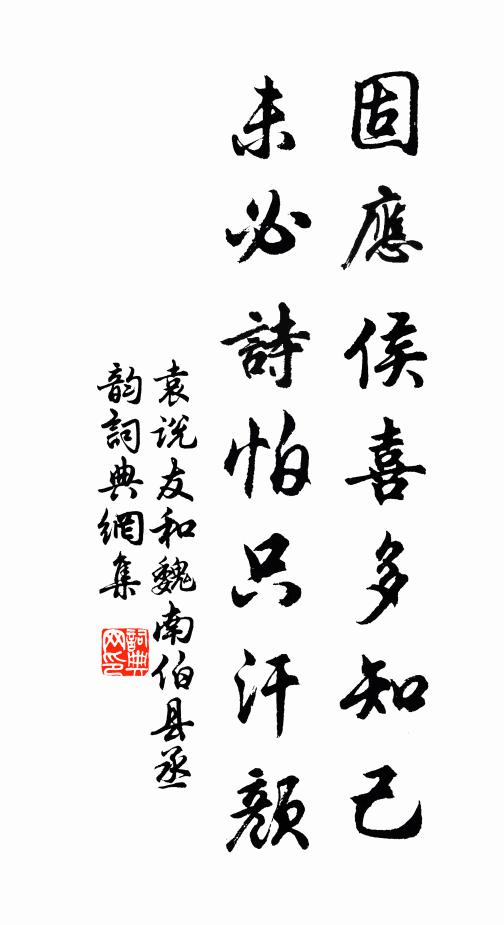 固應侯喜多知己
未必詩怕只汗顏
袁说友和魏南伯县丞
韵詞典網集
詞典網印